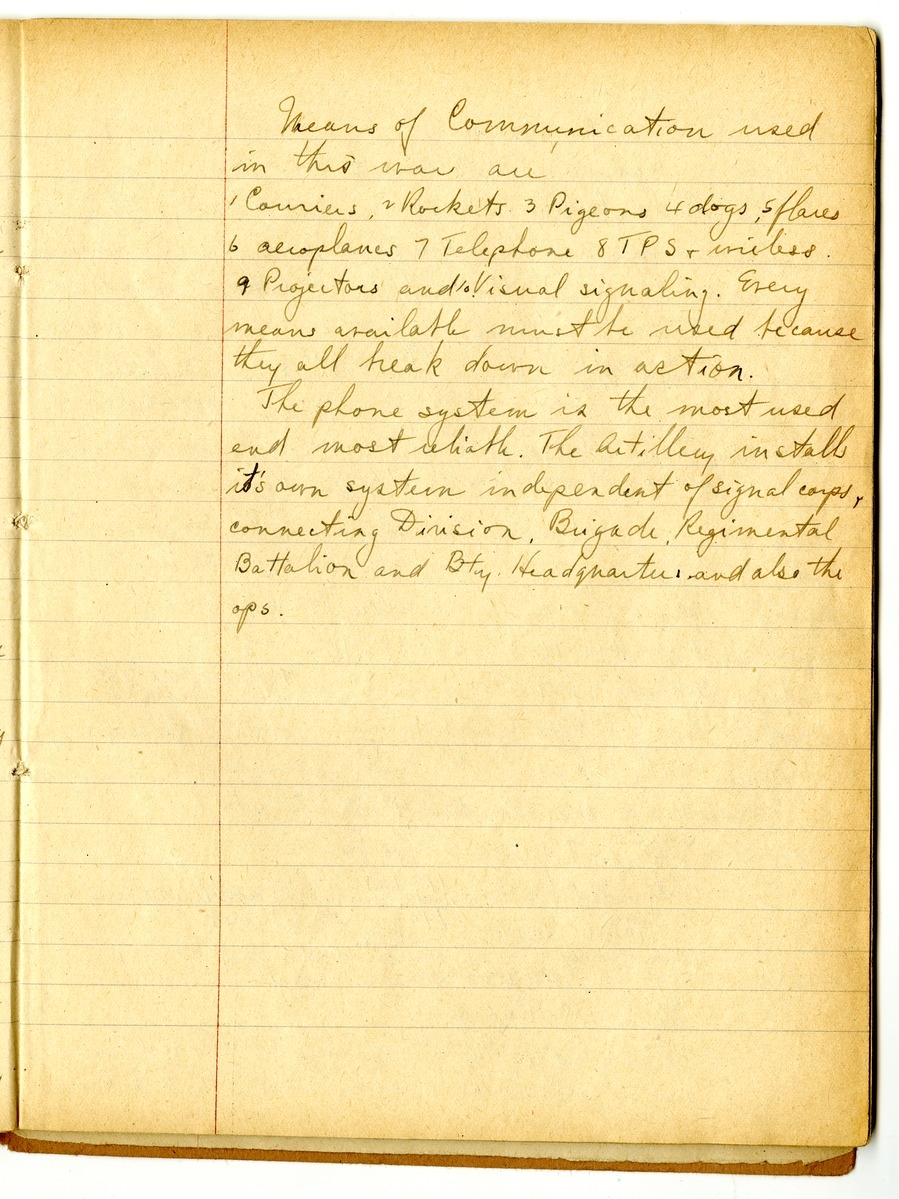 Means of Communication used
in this war are
1 Couriers, 2 Rockets 3 Pigeons 4 dogs, 5 flares
6 aeroplanes 7 Telephone 8 T P S + wireless.
9 Projectors and 10 Visual signaling. Every
means available must be used because
they all break down in action.
The phone system is the most used
and most reliable. The Artillery installs
it's own system independent of signal corps,
connecting Division, Brigade, Regimental
Battalion and Bty. Headquarters and also the
ops.